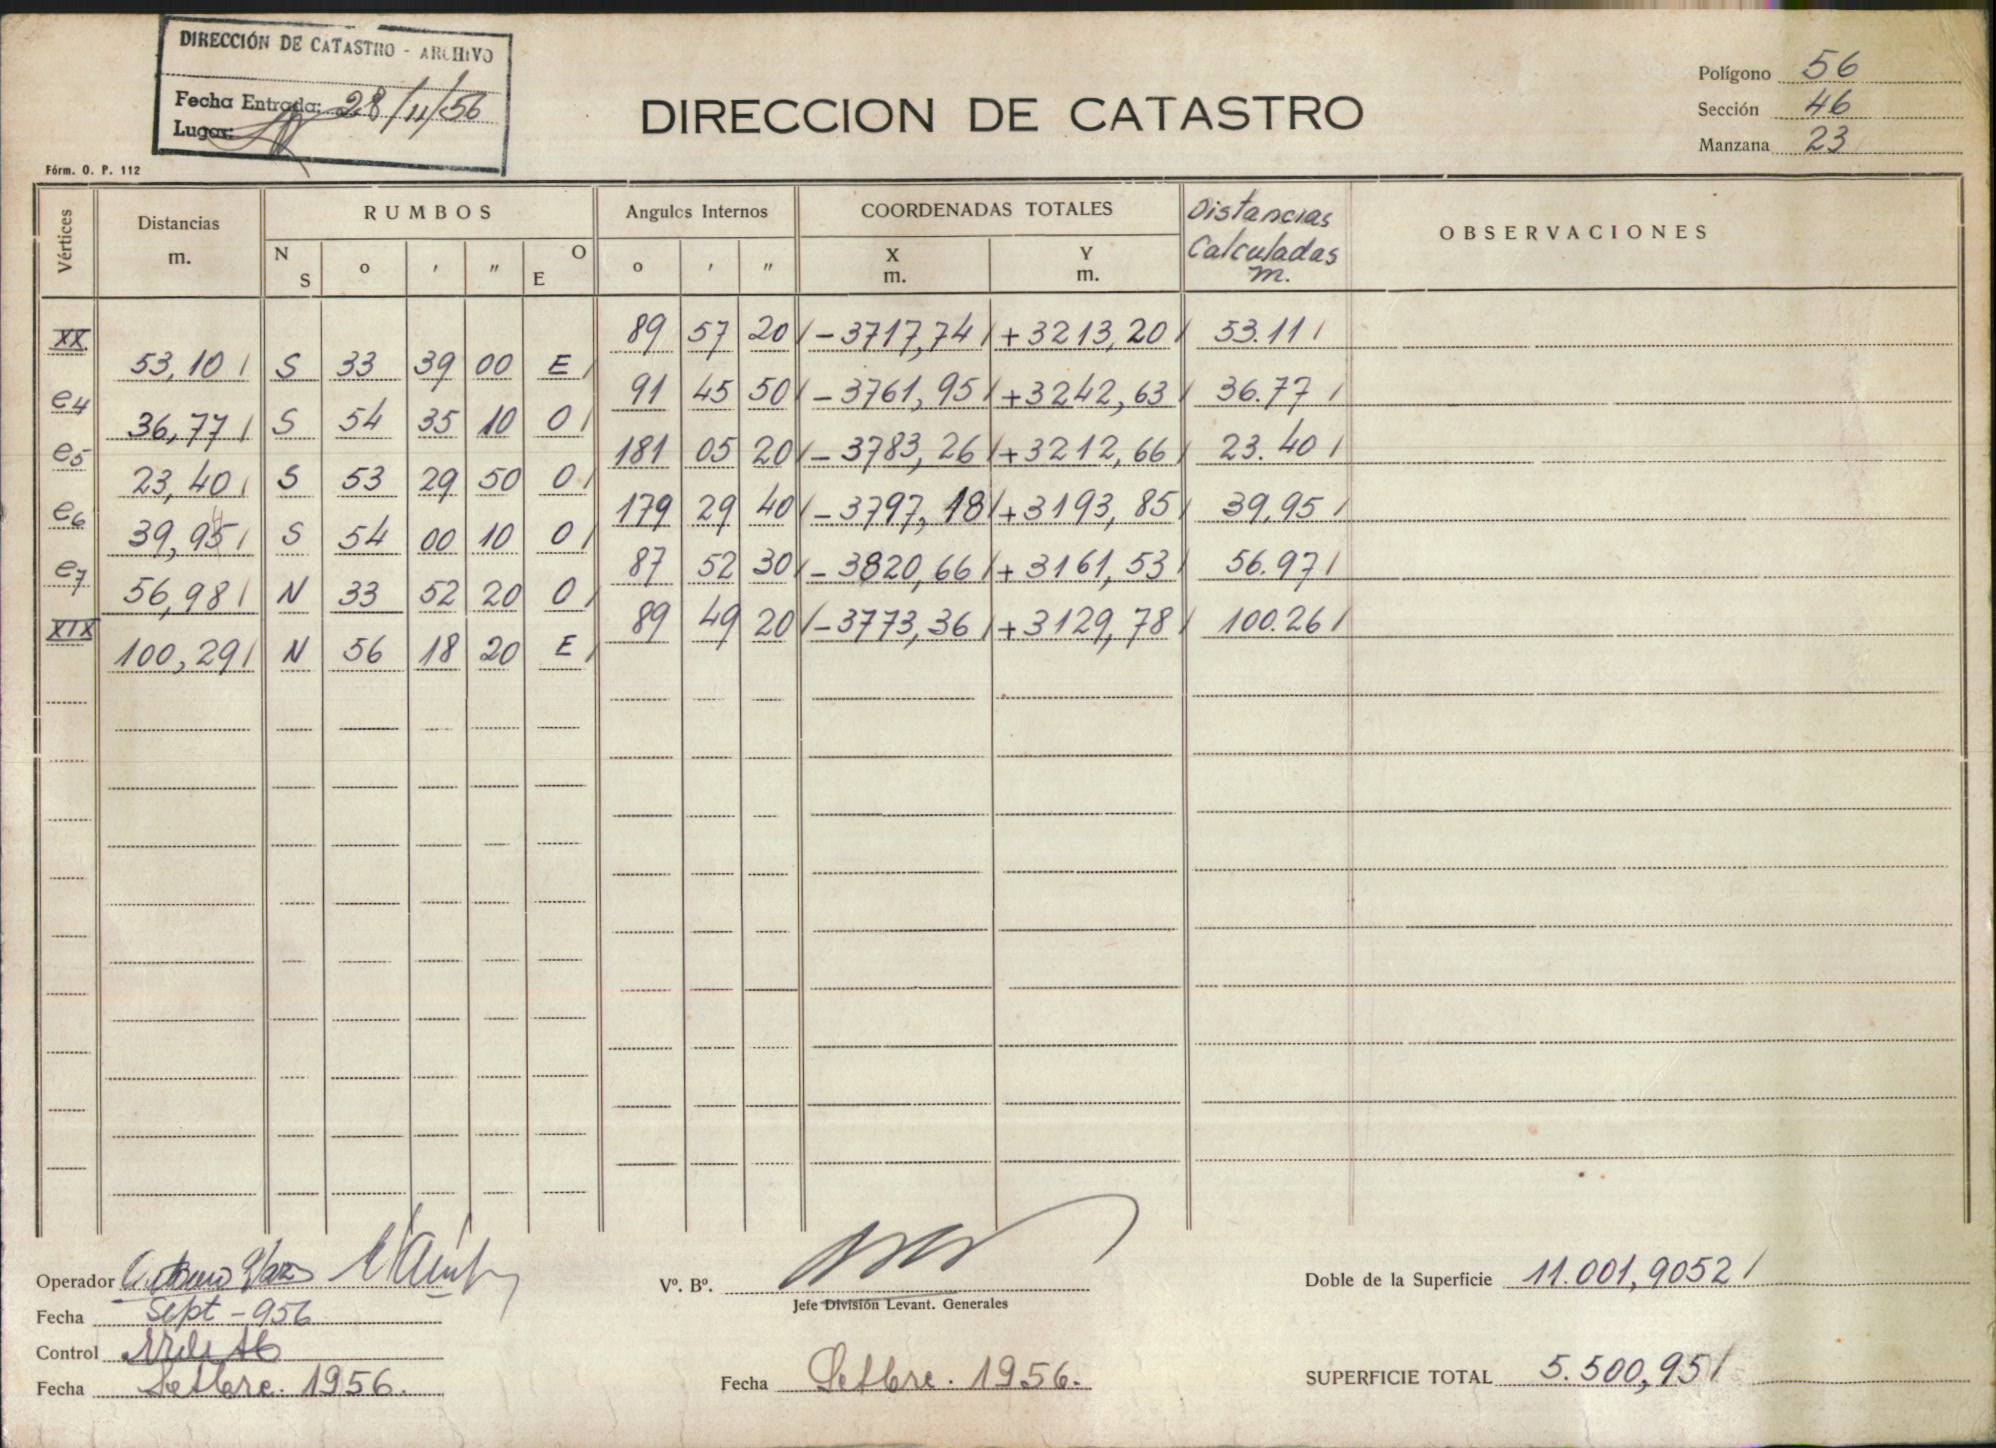 DIRECCIÓN DE CATASTRO - ARCHIVO
Fecha Entrada: 28/11/56
Lugar:
DIRECCION DE CATASTRO
Polígono 56
Sección 46
Manzana 23
Fórm. O. P. 112
Vértices
Distancias m.
RUMBOS
N S o ' " O E
Angulos Internos
o ' "
COORDENADAS TOTALES
X m. Y m.
Distancias Calculadas m.
OBSERVACIONES
XX 89 57 20 -3717,74 +3213,20 53.11
53,10 S 33 39 00 E
e4 91 45 50 -3761,95 +3242,63 36.77
36,77 S 54 35 10 O
e5 181 05 20 -3783,26 +3212,66 23.40
23,40 S 53 29 50 O
e6 179 29 40 -3797,18 +3193,85 39,95
39,95 S 54 00 10 O
e7 87 52 30 -3820,66 +3161,53 56.97
56,98 N 33 52 20 O
XIX 89 49 20 -3773,36 +3129,78 100.26
100,29 N 56 18 20 E
Operador
Fecha Sept - 956
Control
Fecha Setbre. 1956.
Vº. Bº.
Jefe División Levant. Generales
Fecha Setbre. 1956.
Doble de la Superficie 11.001,9052
SUPERFICIE TOTAL 5.500,95